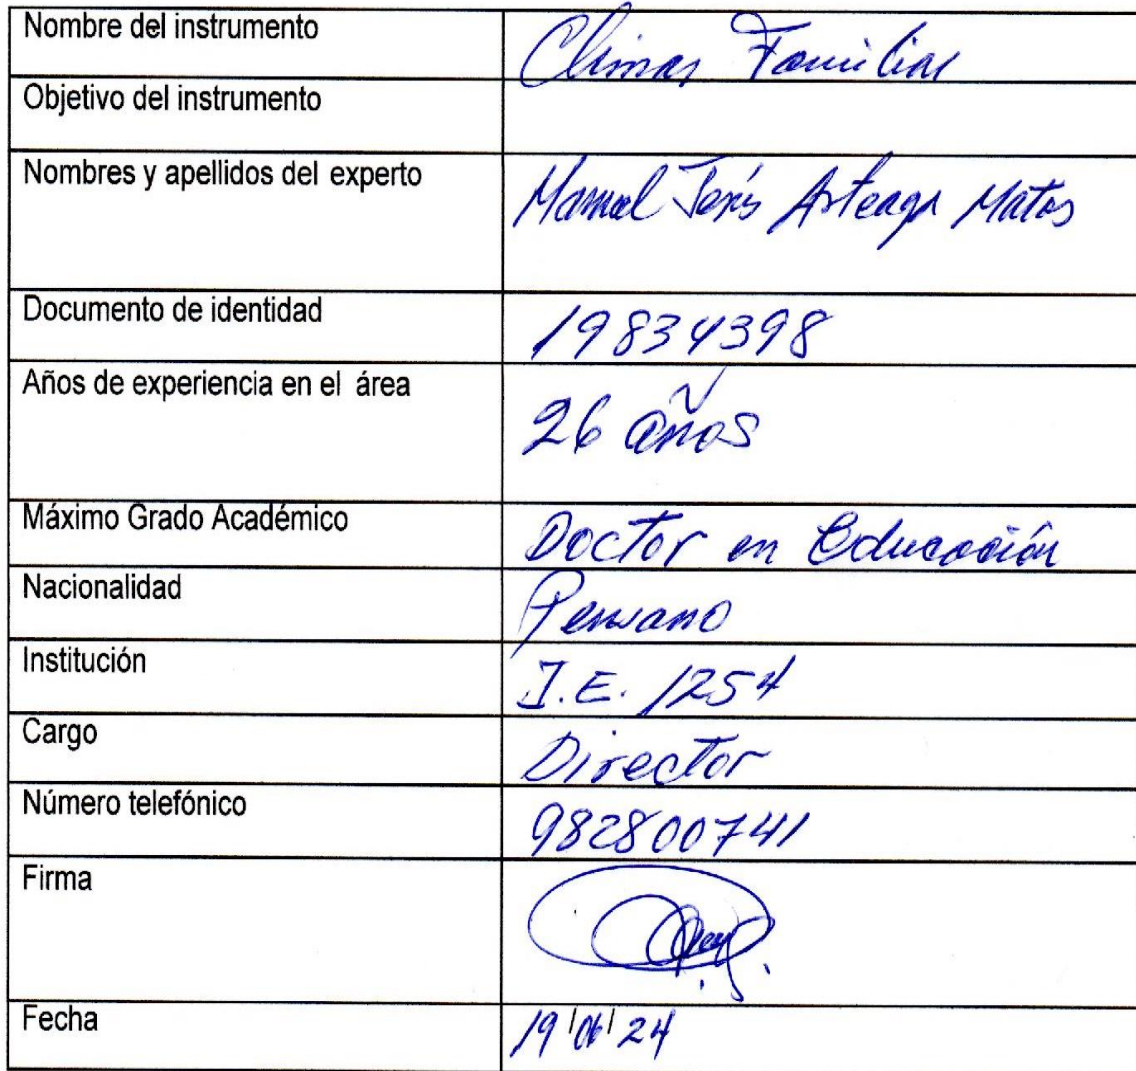 Nombre del instrumento
Climas Familiar
Objetivo del instrumento
Nombres y apellidos del experto
Manuel Jesús Arteaga Matos
Documento de identidad
19834398
Años de experiencia en el área
26 años
Máximo Grado Académico
Doctor en Educación
Nacionalidad
Peruano
Institución
I.E. 1254
Cargo
Director
Número telefónico
982800741
Firma
Fecha
19/06/24